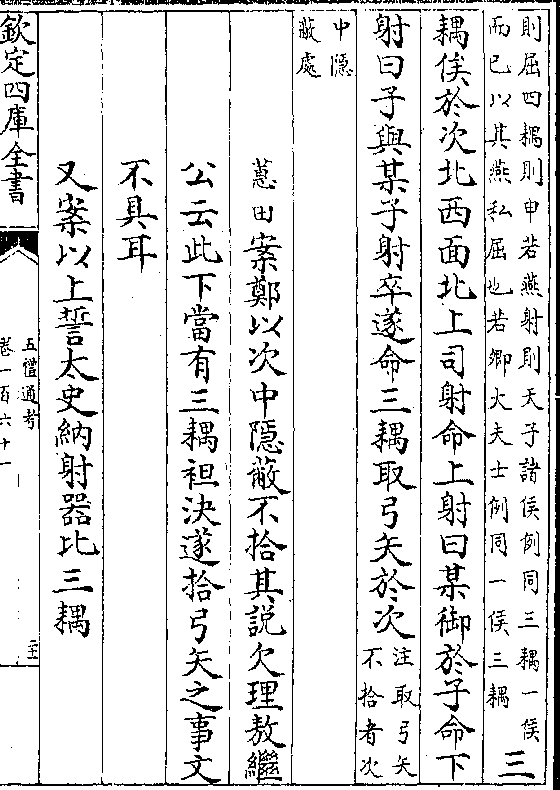 則屈四耦則申若燕射則天子諸侯例同三耦一侯
而已以其燕私屈也若卿大夫士例同一侯三耦
三
耦俟於次北西面北上司射命上射曰某御於子命下
射曰子與某子射卒遂命三耦取弓矢於次
注取弓矢
不拾者次
中隱
蔽處
蕙田案鄭以次中隱蔽不拾其說欠理敖繼
公云此下當有三耦袒決遂拾弓矢之事文
不具耳
又案以上誓太史納射器比三耦
欽定四庫全書
五禮通考
卷一百六十一